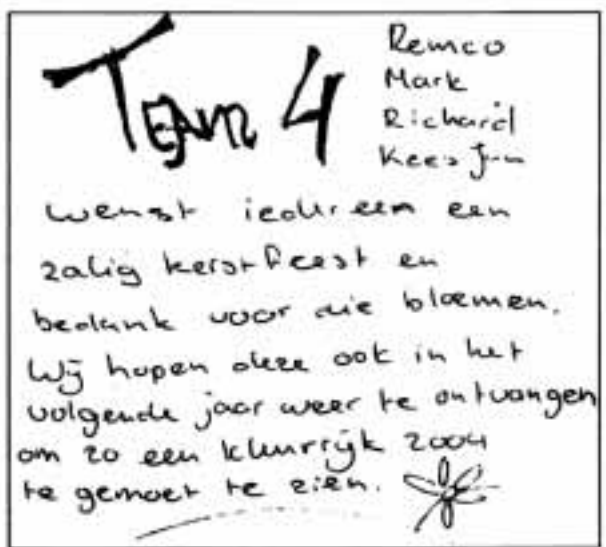 TEAM 4
Remco
Mark
Richard
Kees Jan
wenst iedereen een
zalig kerstfeest en
bedank voor die bloemen.
Wij hopen deze ook in het
volgende jaar weer te ontvangen
om zo een kleurrijk 2004
te gemoet te zien.